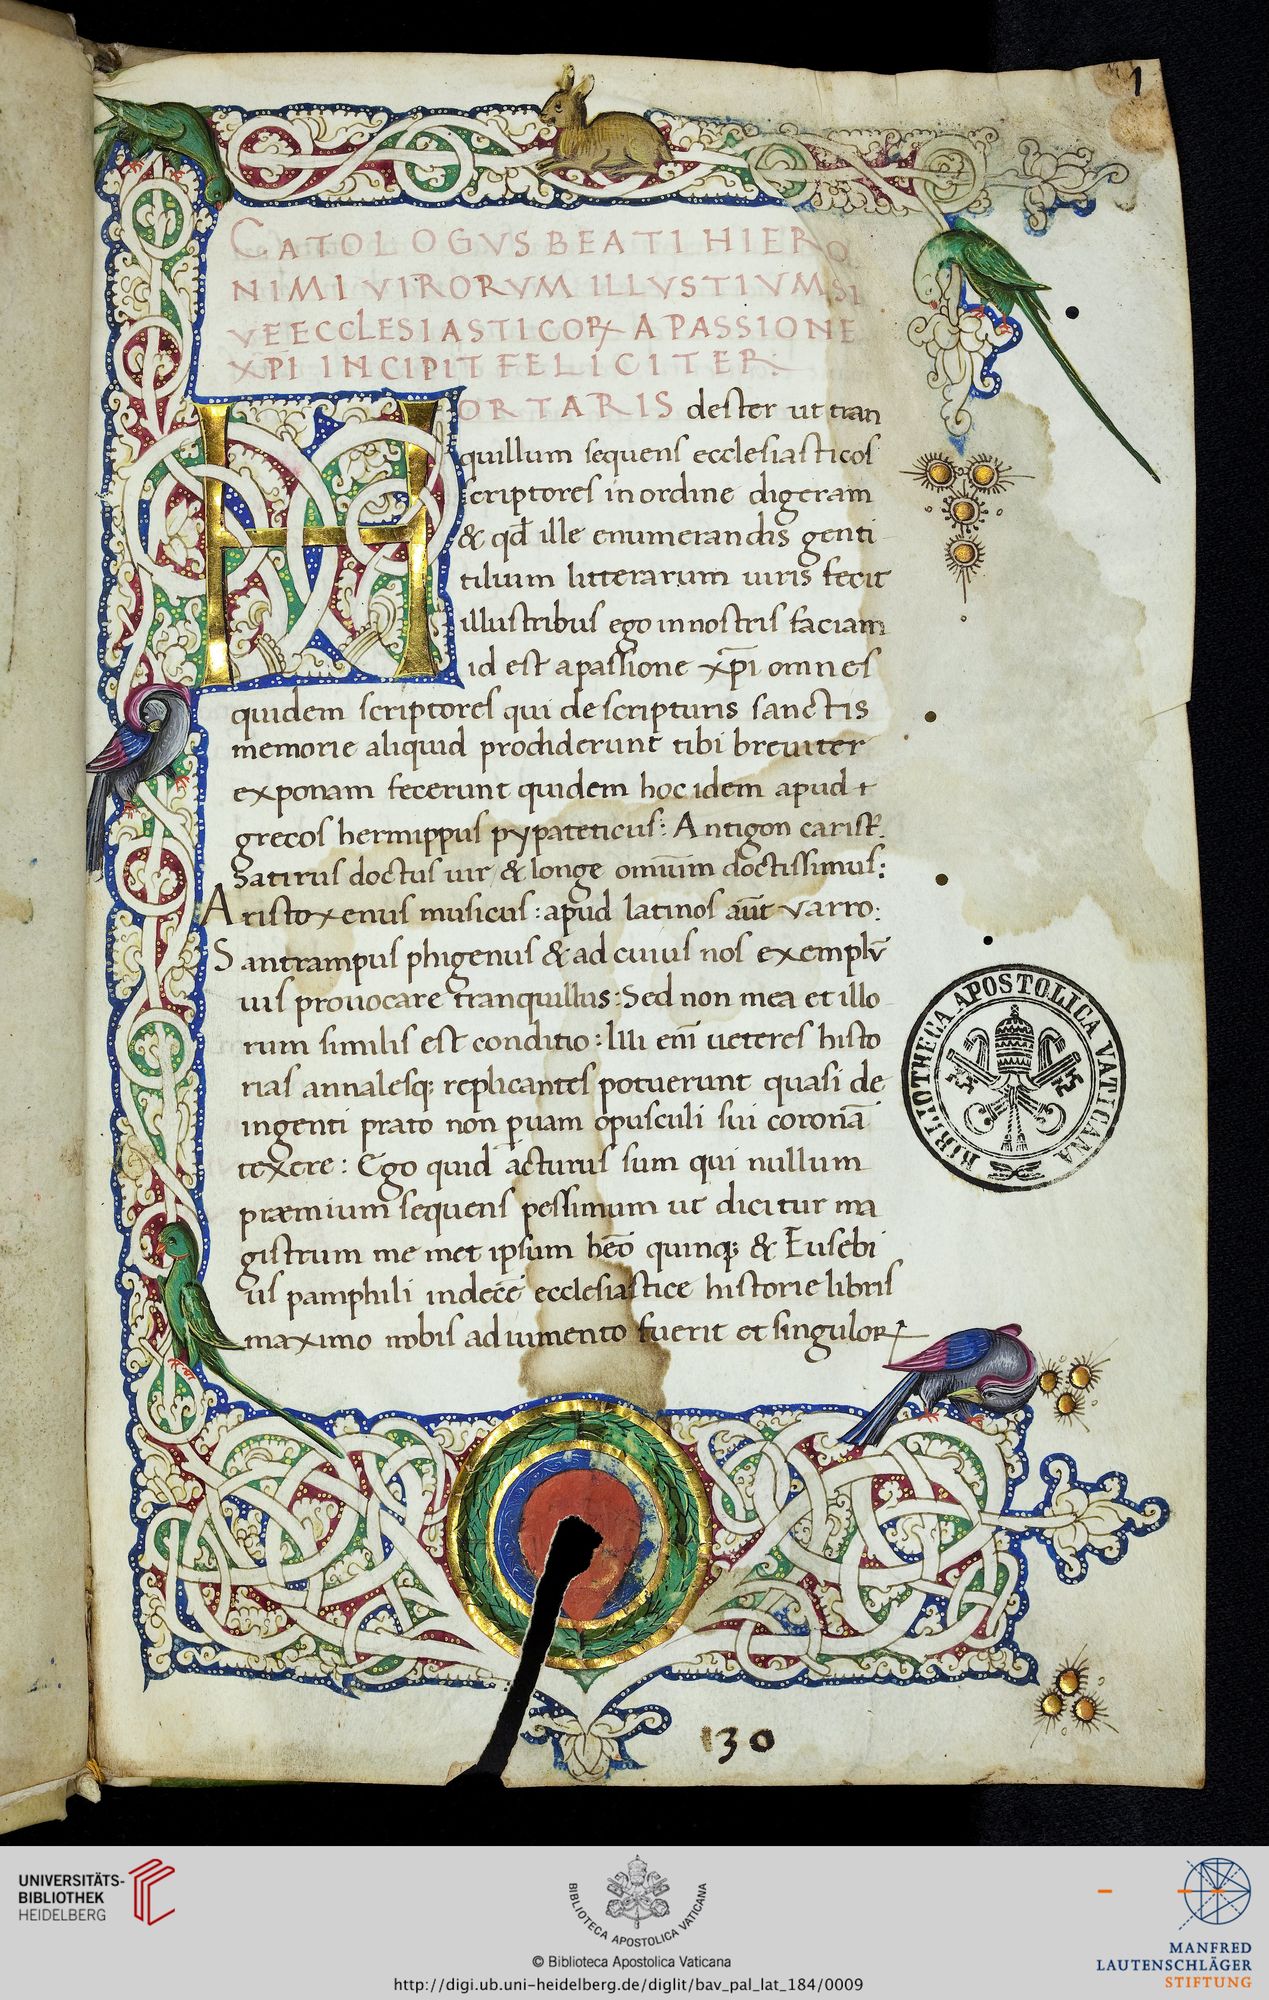 1
CATOLOGVS BEATI HIERO
NIMI VIRORVM ILLVSTIVM SI
VE ECCLESIASTICOꝜ A PASSIONE
XP̅I INCIPIT FELICITER:
HORTARIS dester ut tran
quillum sequens ecclesiasticos
scriptores in ordine digeram
& qd̅ ille enumerandis genti
tilium litterarum uiris fecit
illustribus ego in nostris faciam
id est a passione xp̅i omnes
quidem scriptores qui de scripturis sanctis
memorie aliquid prodiderunt tibi breuiter
exponam fecerunt quidem hoc idem apud
grecos hermippus pypateticus: Antigon carist᷒.
Satirus doctus uir & longe omiu̅m doctissimus:
Aristoxenus musicus: apud latinos aut̅ varro:
Santrampus phigenus & ad cuius nos exemplu̅
uis prouocare tranquillus: Sed non mea et illo
rum similis est conditio: Illi eni̅ ueteres histo
rias annalesq; replicantes potuerunt quasi de
ingenti prato non ꝑuam opusculi sui corona̅
texere: Ego quid acturus sum qui nullum
præmium sequens pessimum ut dicitur ma
gistrum me met ipsum beo̅ quinq; & Eusebi
us pamphili in dece̅ ecclesiastice historie libris
maximo nobis adiumento fuerit et singuloꝝ
BIBLIOTHECA APOSTOLICA VATICANA
130
UNIVERSITÄTS-
BIBLIOTHEK
HEIDELBERG
BIBLIOTECA APOSTOLICA VATICANA
© Biblioteca Apostolica Vaticana
http://digi.ub.uni-heidelberg.de/diglit/bav_pal_lat_184/0009
MANFRED
LAUTENSCHLÄGER
STIFTUNG